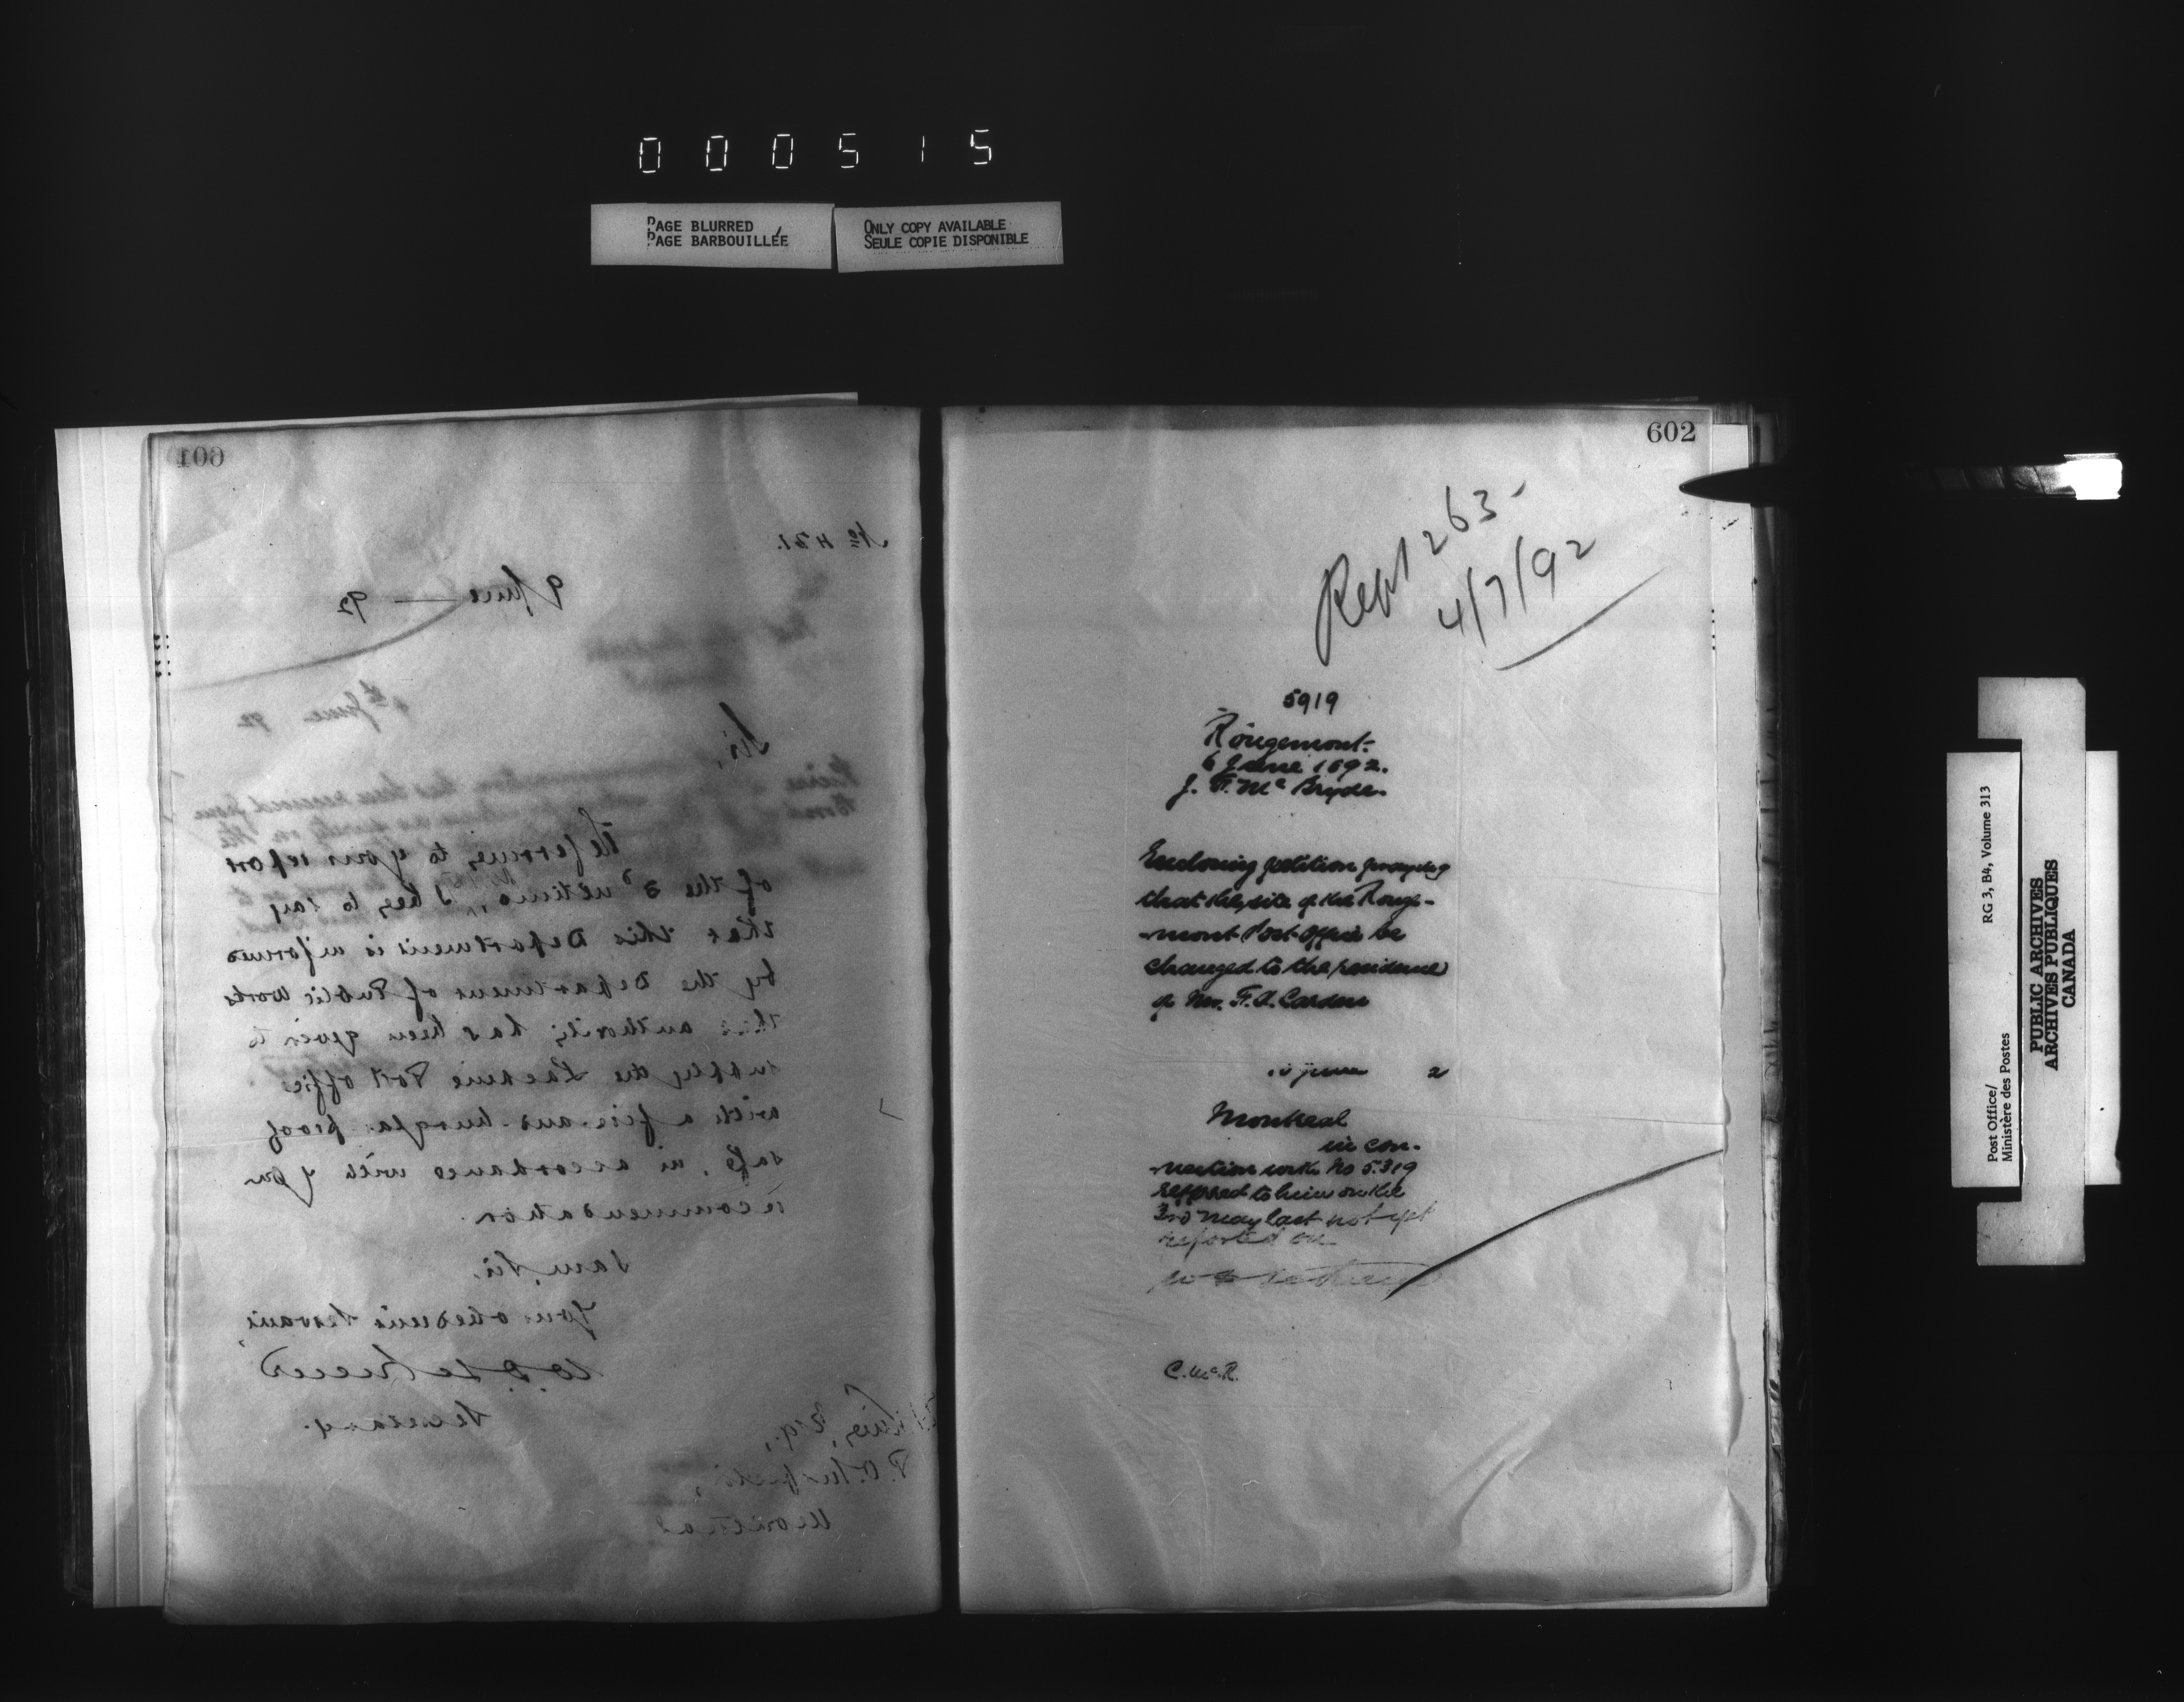 000515
PAGE BLURRED
PAGE BARBOUILLÉE
ONLY COPY AVAILABLE
SEULE COPIE DISPONIBLE
601
No 431.
9 June — 92
Sir,
Referring to your report
of the 3d ultimo, I beg to say
that this Department is informed
by the Department of Public Works
that authority has been given to
supply the Lachine Post office
with a fire and burglar proof
safe, in accordance with your
recommendation.
I am, Sir,
Your obedient Servant,
Secretary.
King, Esq.,
P.O. Inspector,
Montreal
602
Rept 263-
4/7/92
5919
Rougemont.
6 June 1892.
J. F. Mc Bryde.
Enclosing petition praying
that the site of the Rouge-
-mont Post Office be
changed to the residence
of Mr. F. A. Carden
10 June 2
Montreal
in con-
-nection with No 5319
referred to him on the
3rd May last not yet
reported on
C. McR.
Post Office/
Ministère des Postes
RG 3, B4, Volume 313
PUBLIC ARCHIVES
ARCHIVES PUBLIQUES
CANADA